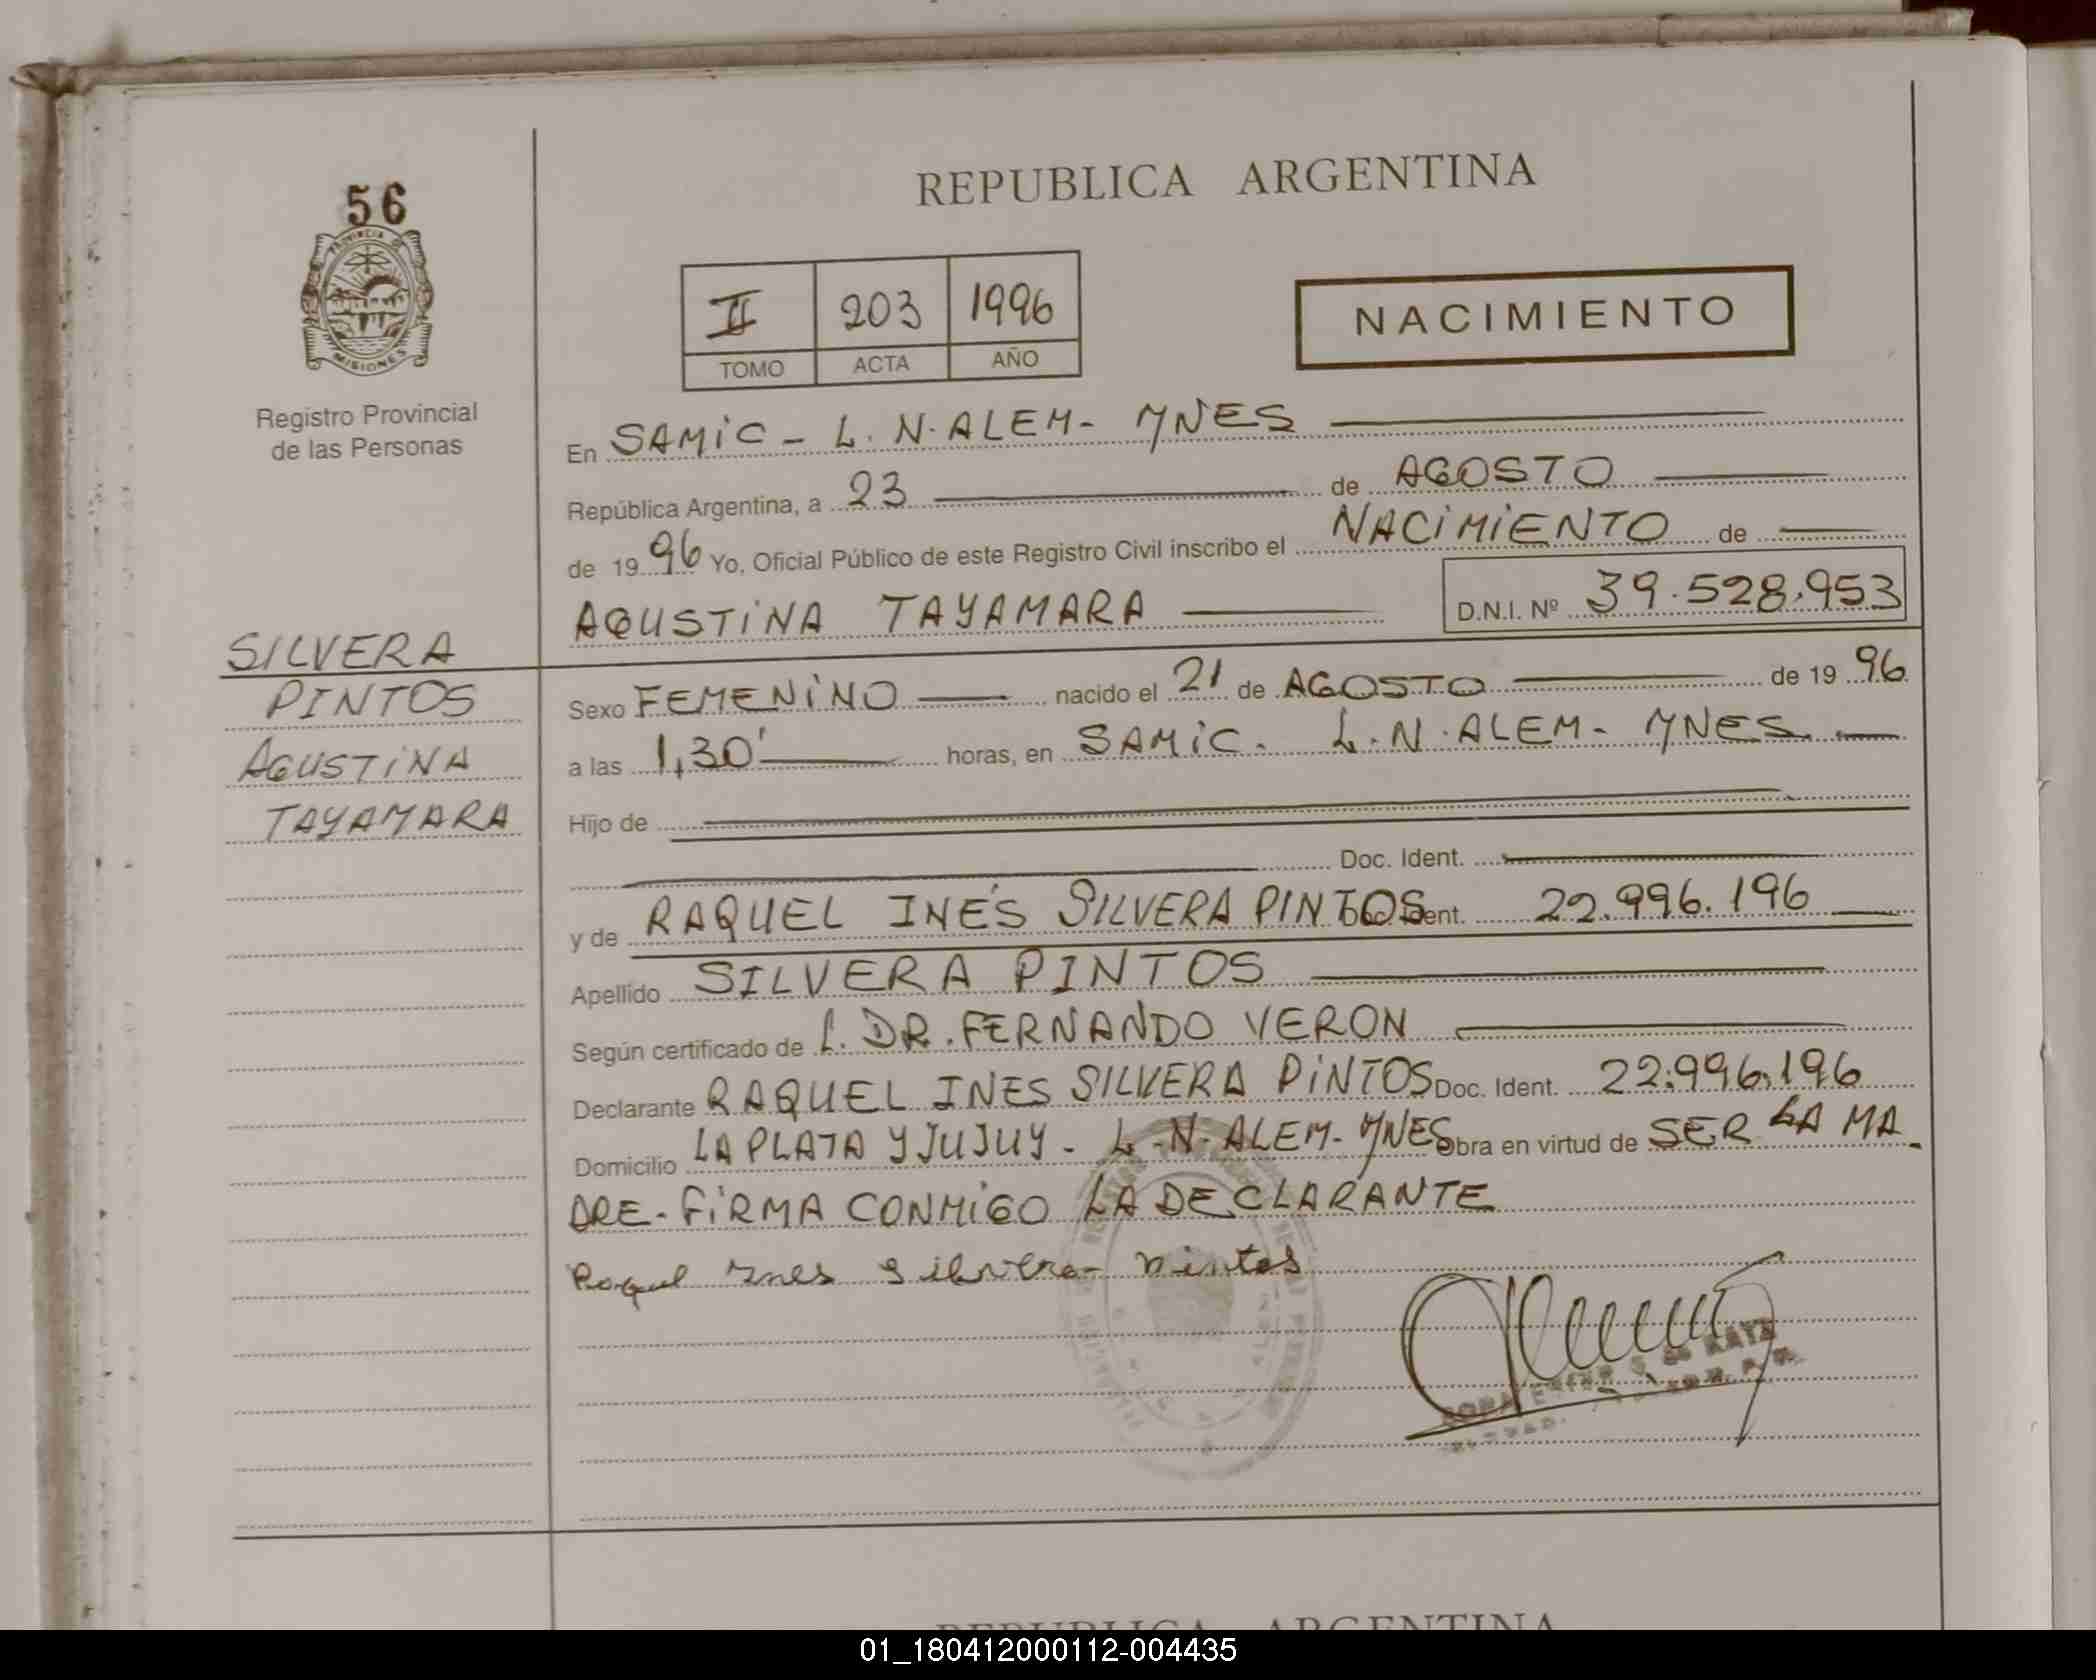 56
PROVINCIA DE
MISIONES
Registro Provincial
de las Personas
SILVERA
PINTOS
AGUSTINA
TAYAMARA
REPUBLICA ARGENTINA
II 203 1996
TOMO ACTA AÑO
NACIMIENTO
En SAMIC - L. N. ALEM - MNES
República Argentina, a 23 de AGOSTO
de 1996 Yo, Oficial Público de este Registro Civil inscribo el NACIMIENTO de
AGUSTINA TAYAMARA D.N.I. Nº 39.528.953
Sexo FEMENINO nacido el 21 de AGOSTO de 1996
a las 1,30' horas, en SAMIC. L. N. ALEM - MNES.
Hijo de
Doc. Ident.
y de RAQUEL INÉS SILVERA PINTOS Doc. Ident. 22.996.196
Apellido SILVERA PINTOS
Según certificado de L. DR. FERNANDO VERON
Declarante RAQUEL INES SILVERA PINTOS Doc. Ident. 22.996.196
Domicilio LA PLATA Y JUJUY - L. N. ALEM - MNES Obra en virtud de SER LA MA-
DRE - FIRMA CONMIGO LA DECLARANTE
Raquel Ines Silvera Pintos
REPUBLICA ARGENTINA
01_180412000112-004435